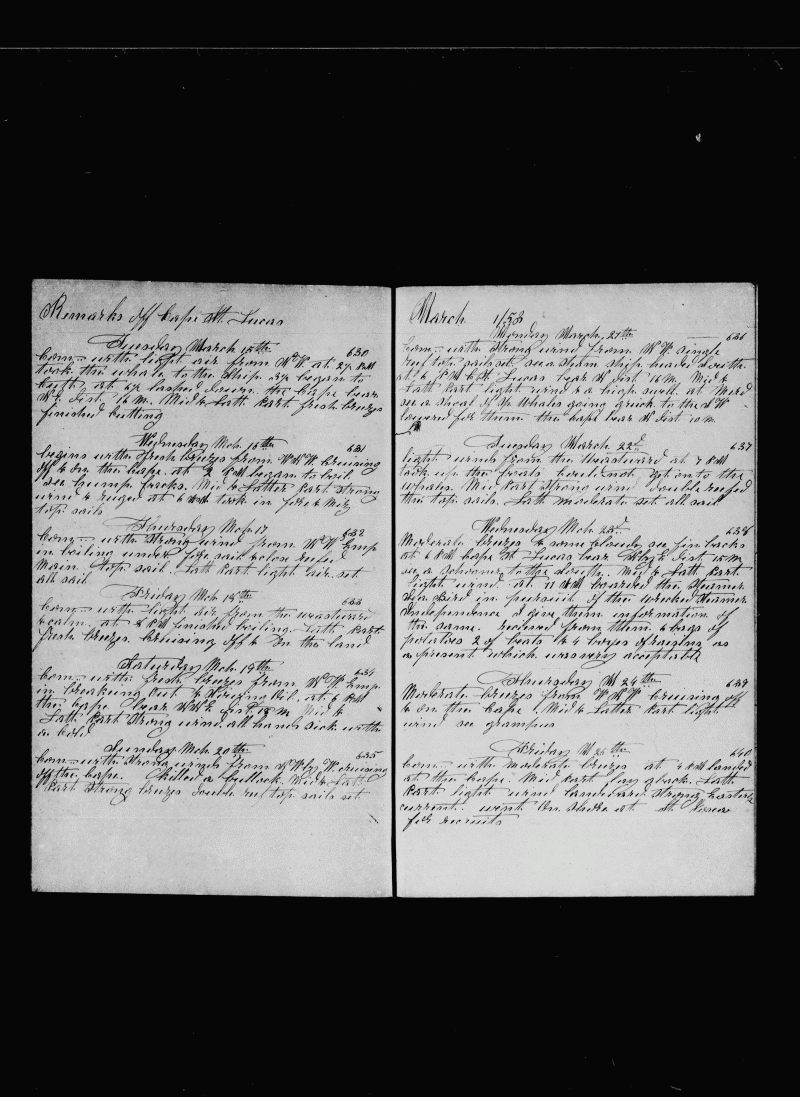 Remarks off Cape St. Lucas
Tuesday March 15th
630
Com— with light air from W at 2 PM
took the whale to the Ship. began to
cutt, at lashed down. the Cape bear
dist. 16 m. Mid & Latt Part. fresh breezes
finished cutting
Wednesday Mch. 16th
631
begins with fresh breezes from WNW. Cruising
off & on the Cape. at PM began to boil
see hump backs. Mid & Latter Part strong
wind & ruged at 6 took in fore & Miz
top sails
Thursday Mch 17
632
Com— with strong wind from Emp
in boiling under fore sail & close reefed
Main top sail. Latt Part light air. set
all sail
Friday Mch. 18th
633
Com— with light air from the westward
& calm. at 8 PM finished boiling. Latt Part
fresh breezes. Cruising off & on the land
Saturday Mch. 19th
634
Com— with fresh breezes from Emp
in breaking out & stowing Oil. at 6 PM
the Cape bear dist 18 m Mid &
Latt Part strong wind. all hands sick with
a cold
Sunday Mch. 20th
635
Com— with strong winds from W by W. cruising
off the Cape. Killed a bullock. Mid & Latt
Part strong breezes double reef top sails set
March 1853
Monday March, 21th
636
Com— with strong wind from single
reef top sails set. see a steam ship headed South
at 6 PM C St. Lucas bear dist 16 m. Mid &
Latt Part light wind & a high swell. at Merid
see a shoal of Whales going quick to the
lowered for them the Cape bear dist 10 m
Tuesday March 22d
637
light winds from the westward at 7 PM
took up the boats could not get on to the
whales. Mid Part strong wind double reefed
the top sails. Latt moderate set all sail
Wednesday Mch. 23d
638
Moderate breezes & some cloudy see fin backs
at 6 PM Cape St Lucas bear dist 15 m
see a schooner to the South. Mid & Latt Part
light wind at 11 boarded the Steamer
Sea Bird in pursuit of the wrecked steamer
Independence I give them information of
the same. received from them 6 bags of
potatoes 2 of & 4 boxes of raisins as
a present which was very acceptable
Thursday M 24th
639
Moderate breezes from WNW. cruising off
& on the Cape. Mid & Latter Part light
wind see grampus
Friday M 25th
640
Com— with moderate breezes at 4 PM landed
at the Cape. Mid Part lay aback. Latt
Part light wind landward strong easterly
current. went on shore at St Lucas
for recruits